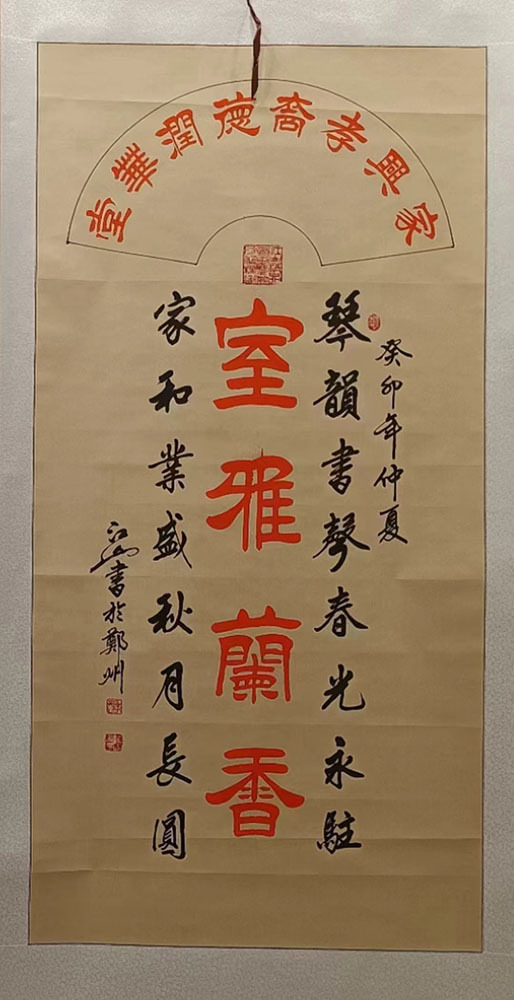 家興孝裔德潤華堂
癸卯年仲夏
琴韻書聲春光永駐
室雅蘭香
家和業盛秋月長圓
江山書於鄭州